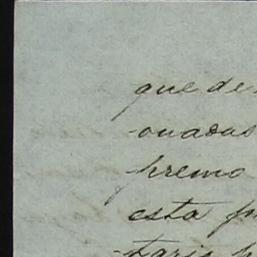 que de
ouadas
premo
esta p
taria p